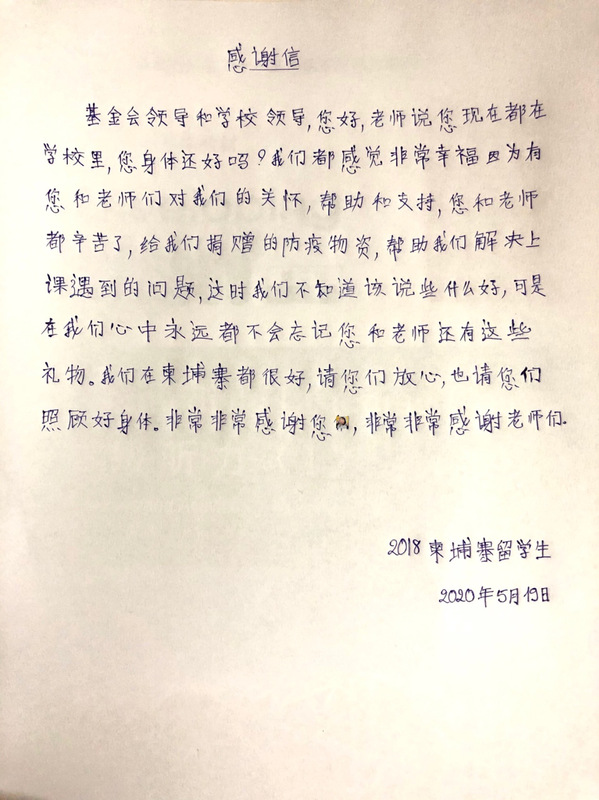 感谢信
基金会领导和学校领导,您好,老师说您现在都在
学校里,您身体还好吗?我们都感觉非常幸福因为有
您和老师们对我们的关怀,帮助和支持,您和老师
都辛苦了,给我们捐赠的防疫物资,帮助我们解决上
课遇到的问题,这时我们不知道该说些什么好,可是
在我们心中永远都不会忘记您和老师还有这些
礼物。我们在柬埔寨都很好,请您们放心,也请您们
照顾好身体。非常非常感谢您,非常非常感谢老师们.
2018柬埔寨留学生
2020年5月19日